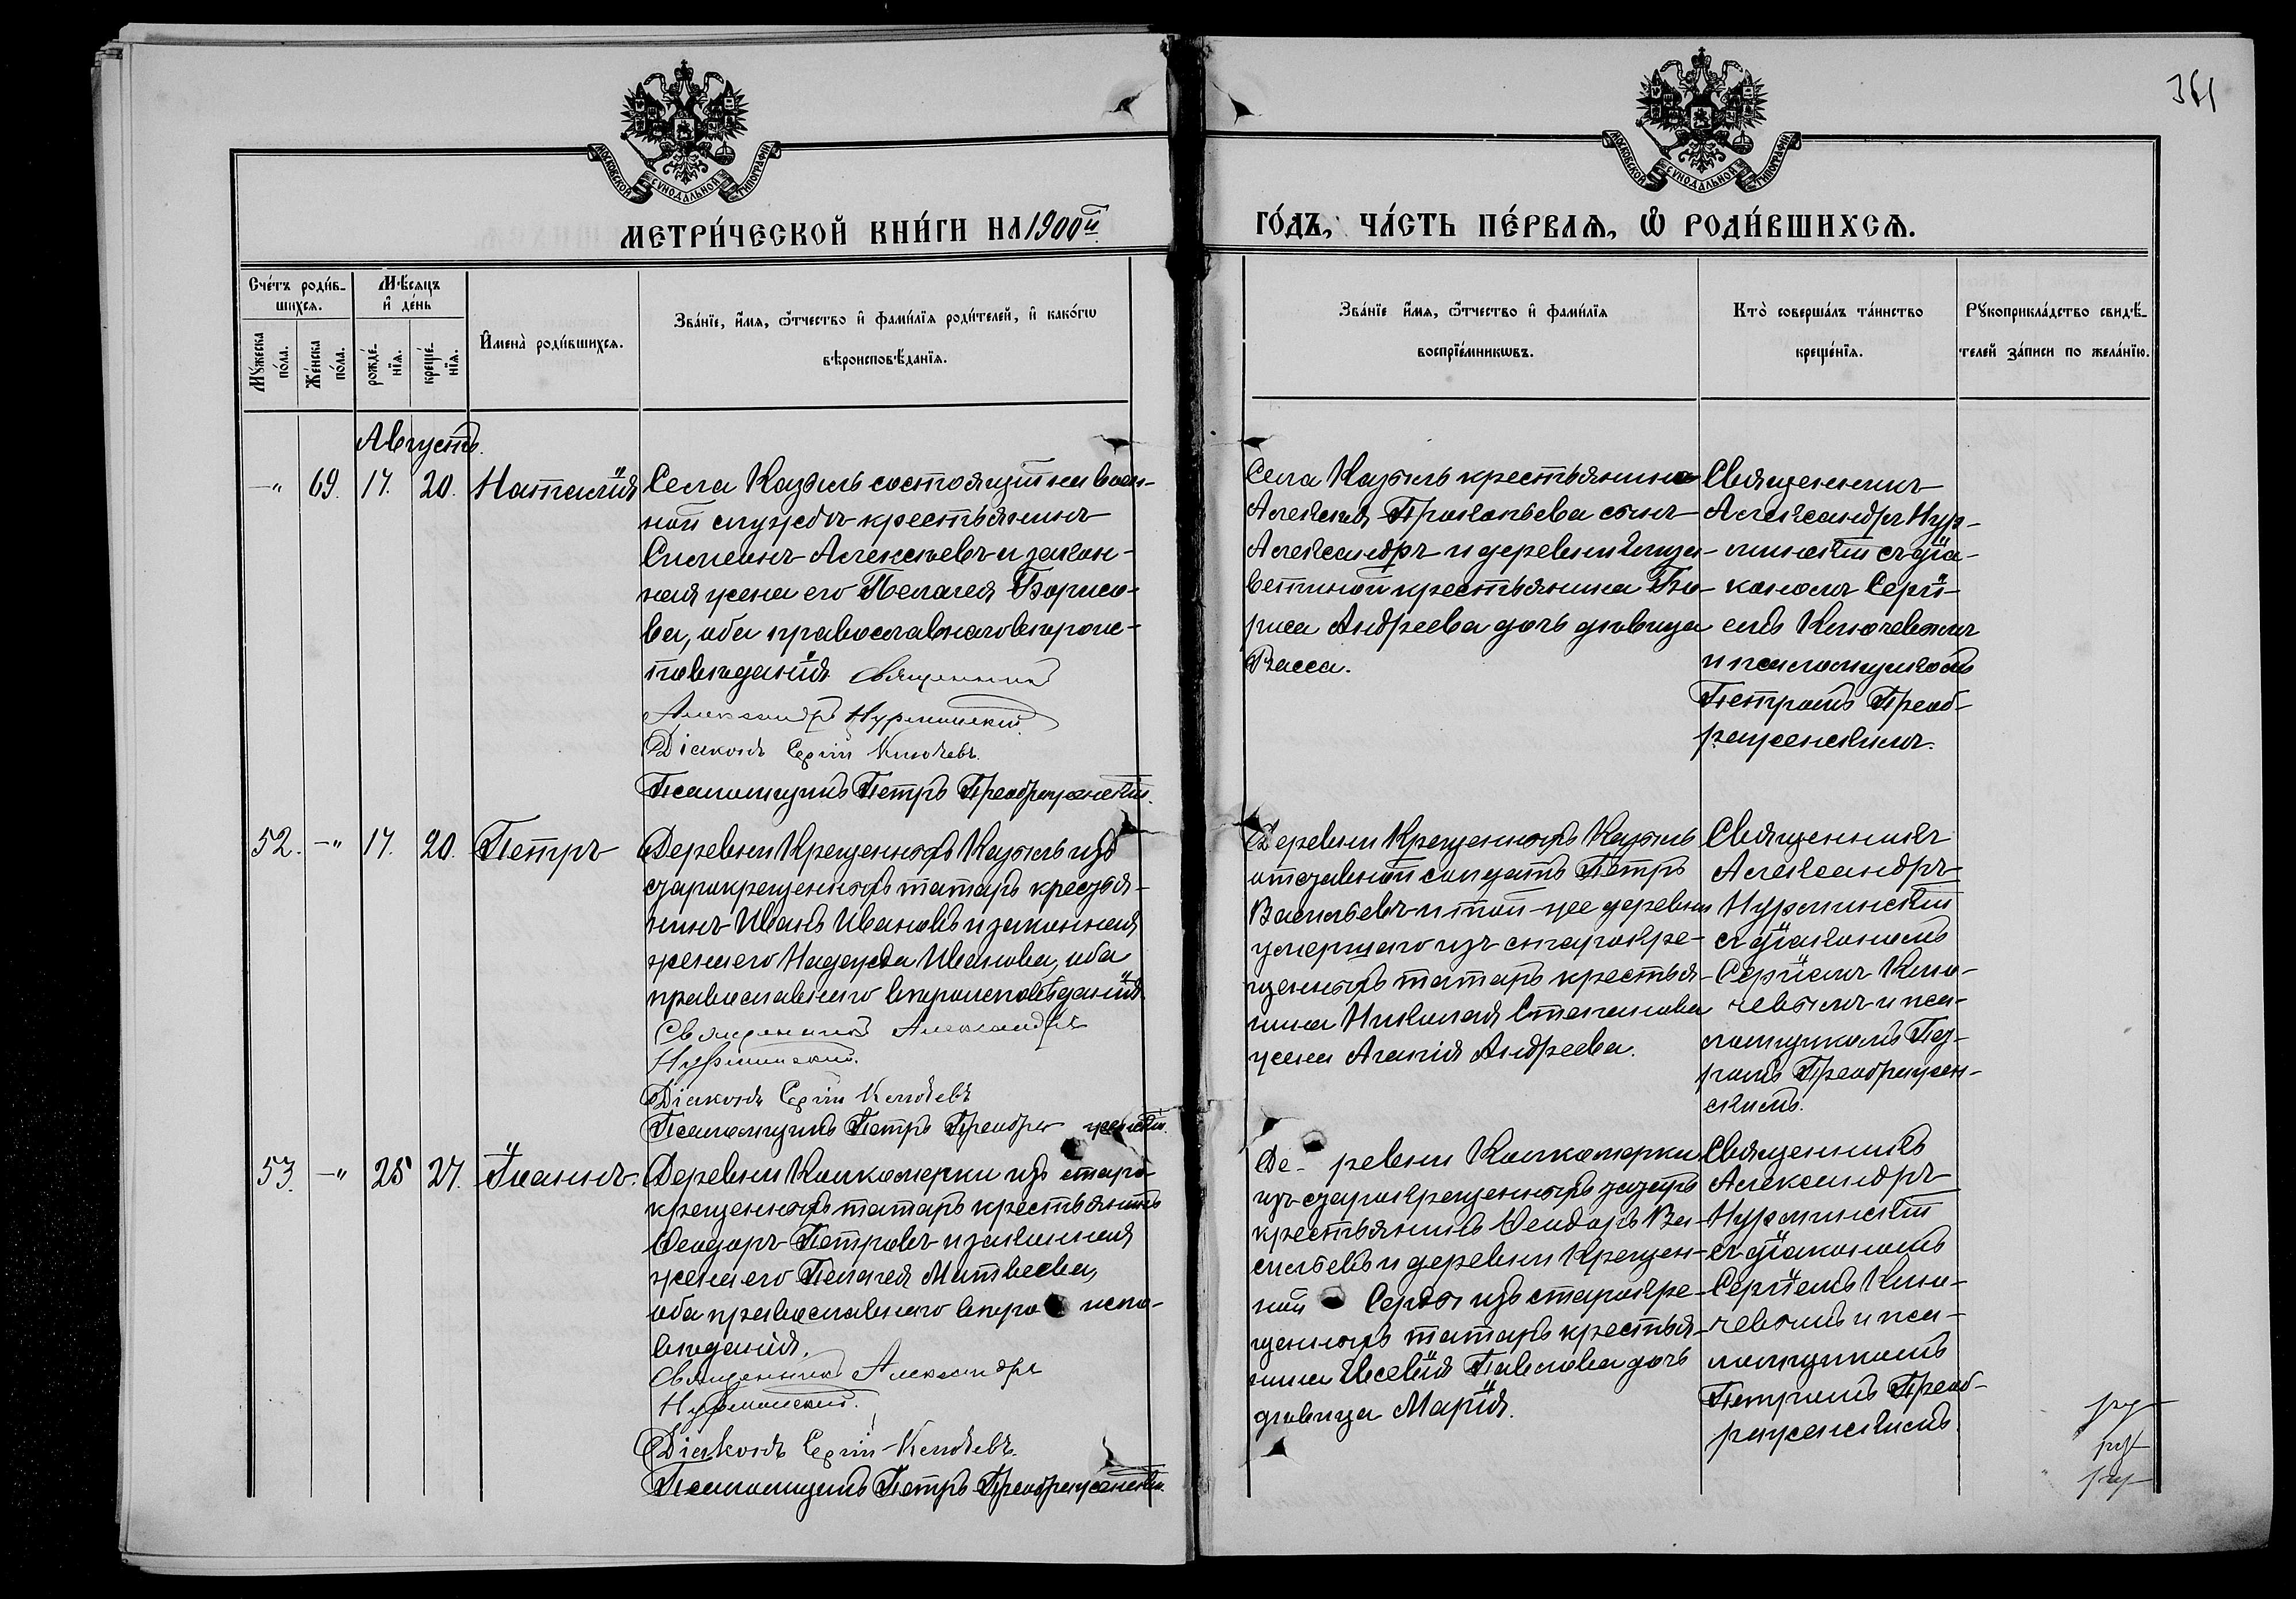 361
МОСКОВСКОЙ СѴНОДАЛЬНОЙ ТИПОГРАФІИ
МОСКОВСКОЙ СѴНОДАЛЬНОЙ ТИПОГРАФІИ
МЕТРИ́ЧЕСКОЙ КНИ́ГИ НА 1900й
ГО́ДЪ, ЧА́СТЬ ПЕ́РВАѦ, Ѡ҆ РОДИ́ВШИХСѦ.
Сче́тъ роди́в-
шихсѧ.
Мѣ́сѧцъ
и҆ де́нь
Мꙋ́жеска
по́ла.
Же́нска
по́ла.
рожде́-
нїѧ.
креще́-
нїѧ.
И҆мена̀ роди́вшихсѧ.
Зва́нїе, и҆́мѧ, ѻ҆́тчество и҆ фами́лїѧ роди́телей, и҆ како́гѡ
вѣроисповѣ́данїѧ.
Зва́нїе и҆́мѧ, ѻ҆́тчество и҆ фами́лїѧ
воспрїе́мникѡвъ.
Кто̀ соверша́лъ та́инство
креще́нїѧ.
Рꙋкоприкла́дство свидѣ́-
телей за́писи по жела́нїю.
Августъ.
-" 69. 17. 20. Наталія
Села Казыль состоящій на воен-
ной службѣ крестьянинъ
Симеонъ Алексѣевъ и закон-
ная жена его Пелагея Борисо-
ва, оба православнаго вѣроис-
повѣданія Священникъ
Александръ Нурминскій.
Діаконъ Сергій Ключевъ.
Псаломщикъ Петръ Преображенскій.
Села Казыль крестьянина
Алексея Прокопьева сынъ
Александръ и деревни Елиза-
ветиной крестьянина Бо-
риса Андреева дочь дѣвица
Васса.
Священникъ
Александръ Нур-
минскій съ діа-
кономъ Сергі-
емъ Ключевымъ
и псаломщикомъ
Петромъ Преоб-
раженскимъ.
52. -" 17. 20. Петръ
Деревни Крещеныхъ Казыль изъ
старокрещеныхъ татаръ крестья-
нинъ Иванъ Ивановъ и законная
жена его Надежда Иванова, оба
православнаго вѣроисповѣданія
Священникъ Александръ
Нурминскій.
Діаконъ Сергій Ключевъ
Псаломщикъ Петръ Преображенскій.
Деревни Крещеныхъ Казыль
отставной солдатъ Петръ
Васильевъ и той-же деревни
умершаго изъ старокре-
щеныхъ татаръ крестья-
нина Николая Степанова
жена Агапія Андреева.
Священникъ
Александръ
Нурминскій
съ діакономъ
Сергіемъ Клю-
чевымъ и пса-
ломщикомъ Пет-
ромъ Преображен-
скимъ.
53. -" 25 27. Іоаннъ.
Деревни Колкомерки изъ старо-
крещеныхъ татаръ крестьянинъ
Ѳеодоръ Петровъ и законная
жена его Пелагея Матвеева,
оба православнаго вѣро испо-
вѣданія.
Священникъ Александръ
Нурминскій.
Діаконъ Сергій Ключевъ
Псаломщикъ Петръ Преображенскій.
Де- ревни Колкомерки
изъ старокрещеныхъ татаръ
крестьянинъ Ѳеодоръ Ва-
сильевъ и деревни Крещен-
ной Серды изъ старокре-
щеныхъ татаръ крестья-
нина Евсевія Павлова дочь
дѣвица Марія.
Священникъ
Александръ
Нурминскій
съ діакономъ
Сергіемъ Клю-
чевымъ и пса-
ломщикомъ
Петромъ Преоб-
раженскимъ.